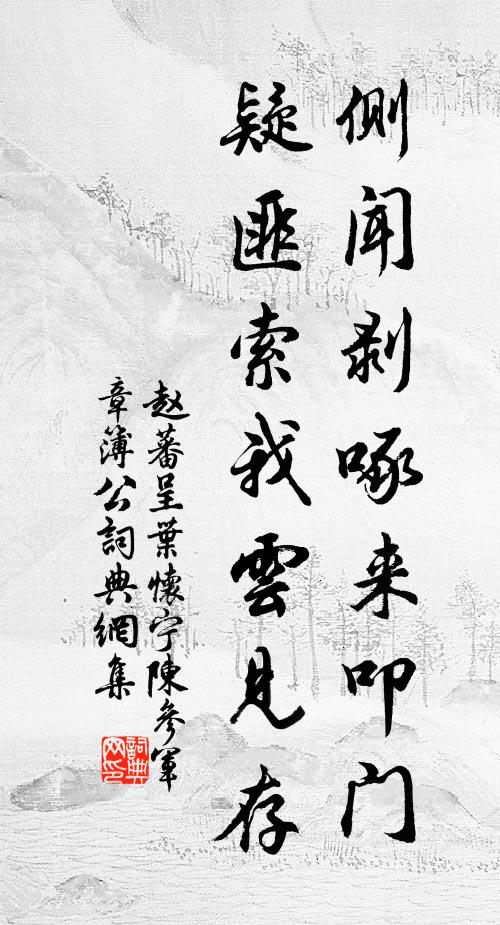 側聞剥啄来叩门
疑匪索我雲見存
赵蕃呈葉懷宁陳參軍
章簿公詞典網集
詞典网印